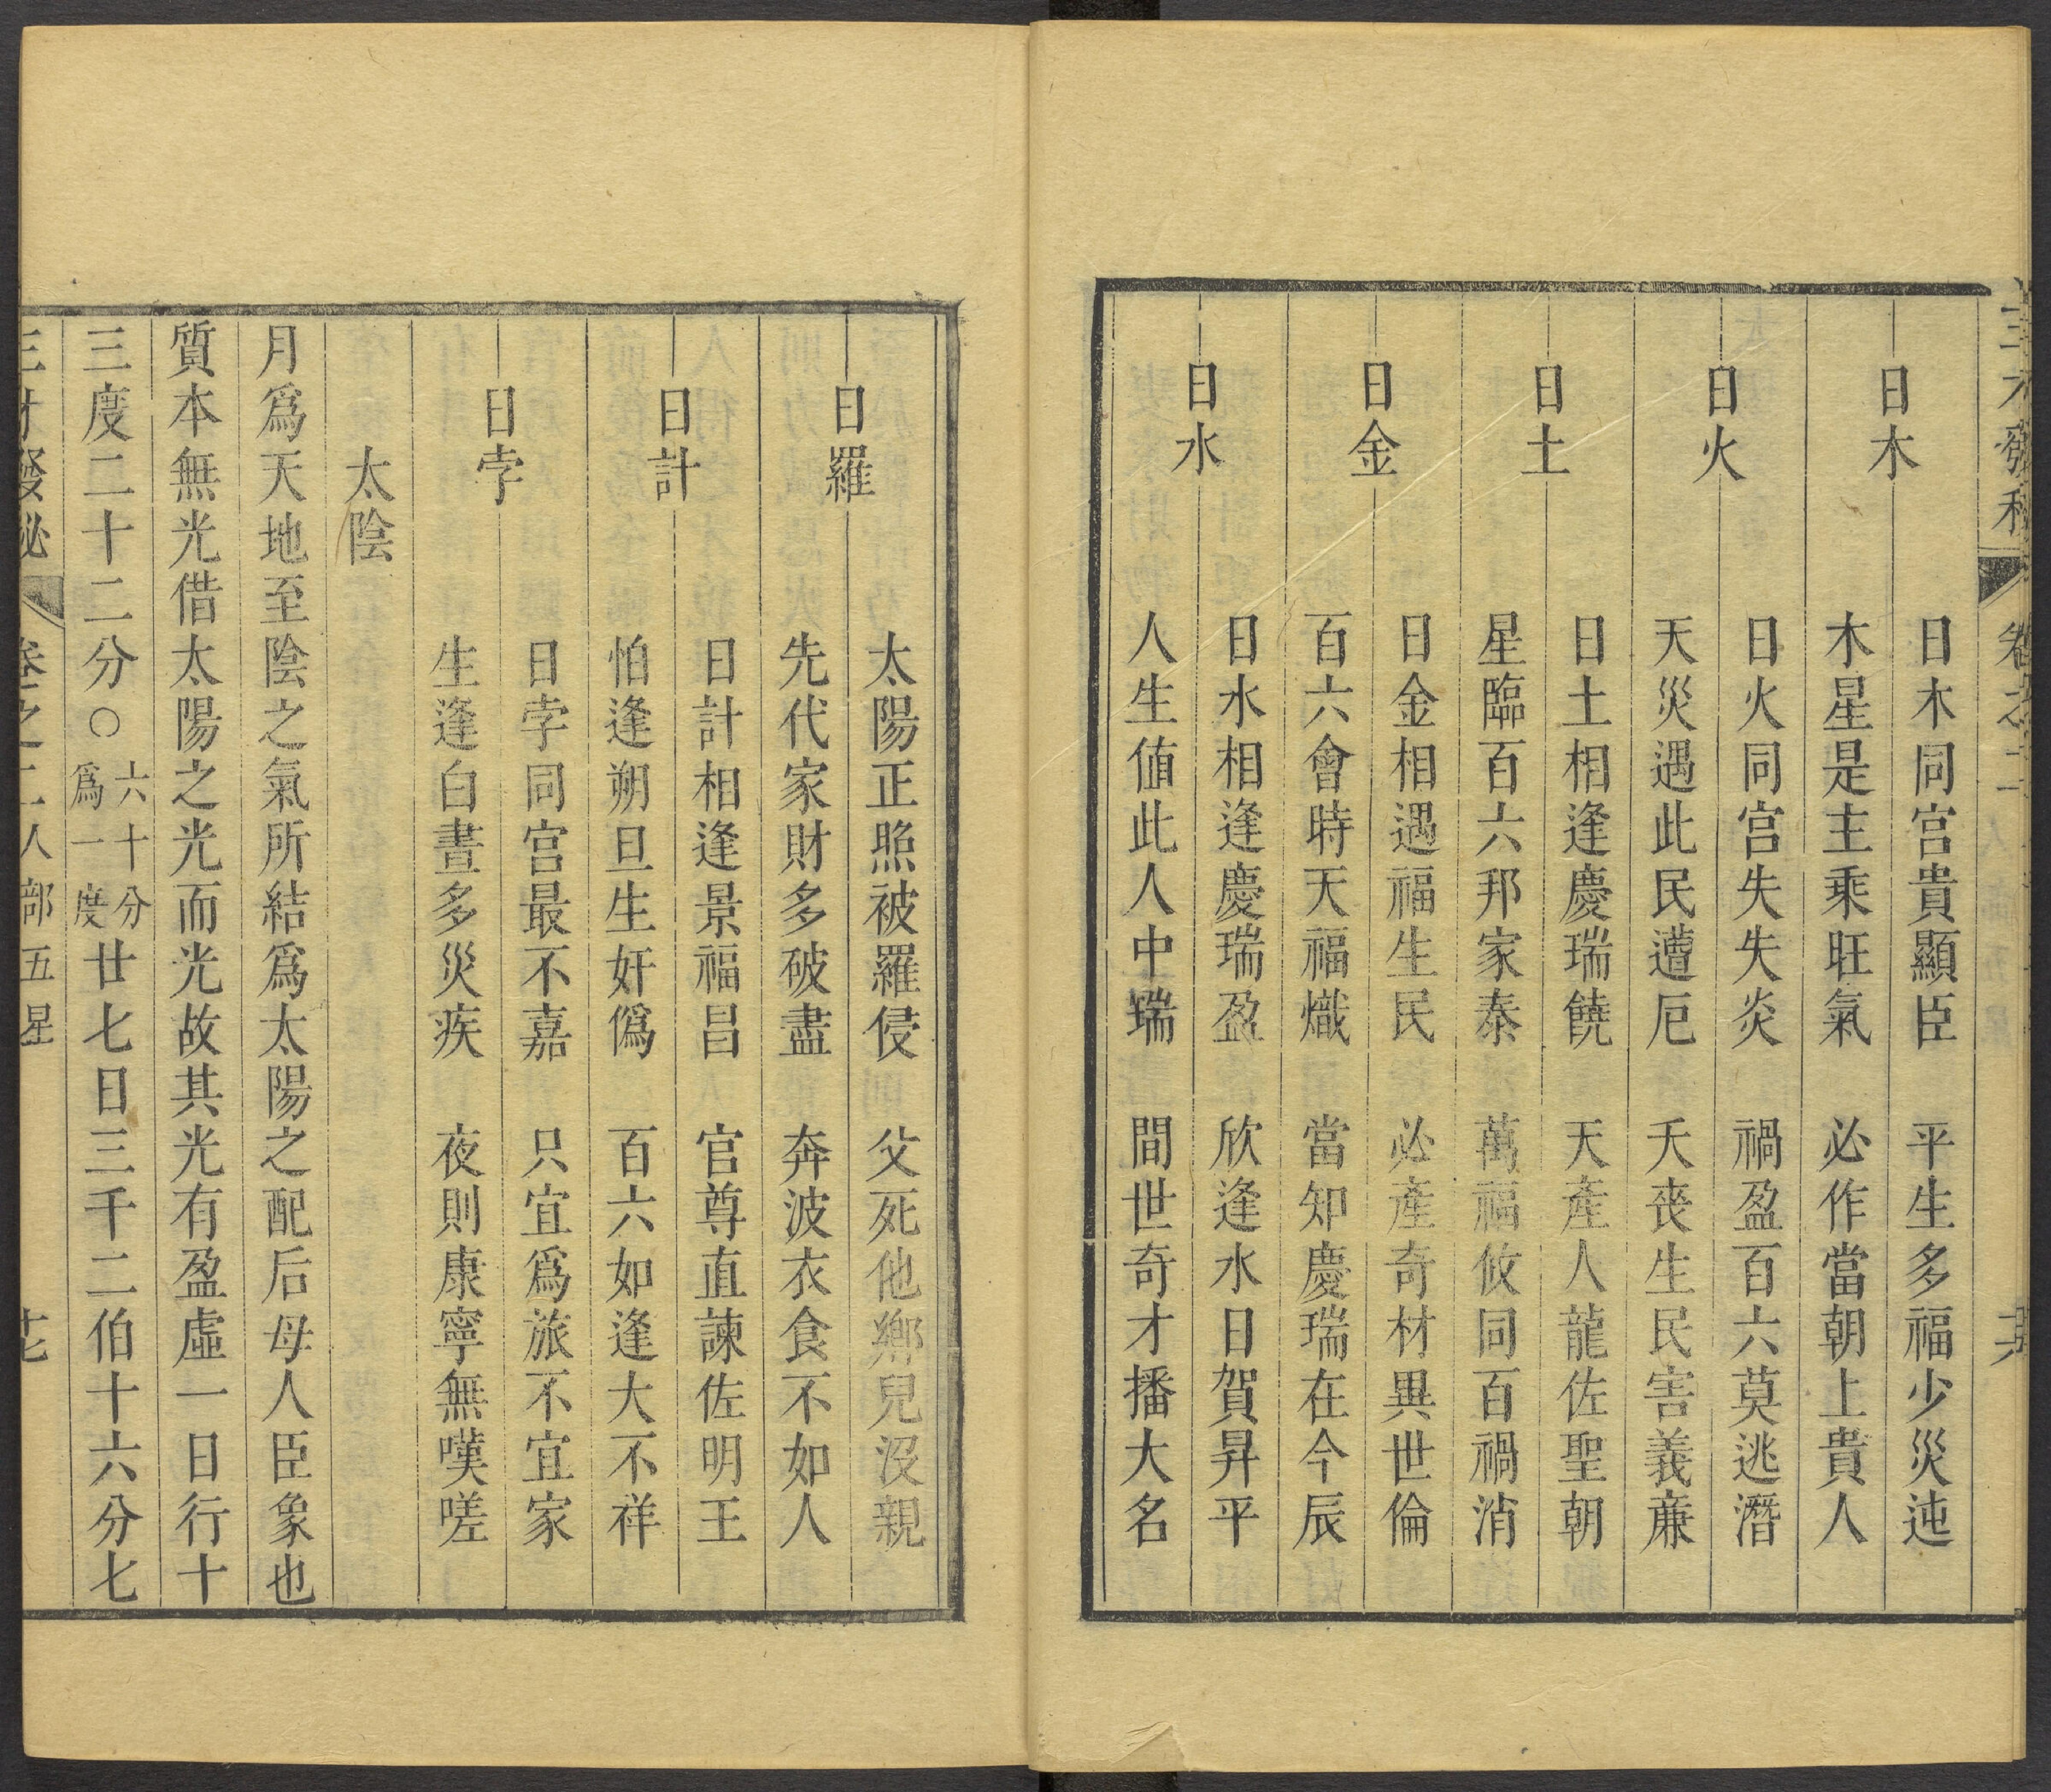 三才發秘 卷之二
日木
日木同宫貴顯臣 平生多福少災迍
木星是主乘旺氣 必作當朝上貴人
日火
日火同宫失失炎 禍盈百六莫逃潛
天災遇此民遭厄 夭丧生民害義廉
日土
日土相逢慶瑞饒 天產人龍佐聖朝
星臨百六邦家泰 萬福攸同百禍消
日金
日金相遇福生民 必產奇材異世倫
百六會時天福熾 當知慶瑞在今辰
日水
日水相逢慶瑞盈 欣逢水日賀昇平
人生値此人中瑞 間世奇才播大名
日羅
太陽正照被羅侵 父死他鄉兒没親
先代家財多破盡 奔波衣食不如人
日計
日計相逢景福昌 官尊直諫佐明王
怕逢朔旦生奸僞 百六如逢大不祥
日孛
日孛同宫最不嘉 只宜爲旅不宜家
生逢白晝多災疾 夜則康寧無嘆嗟
太陰
月爲天地至陰之氣所結爲太陽之配后母人臣象也
質本無光借太陽之光而光故其光有盈虛一日行十
三度二十二分○六十分爲一度廿七日三千二伯十六分七
三才發秘 卷之二人部五星 十七